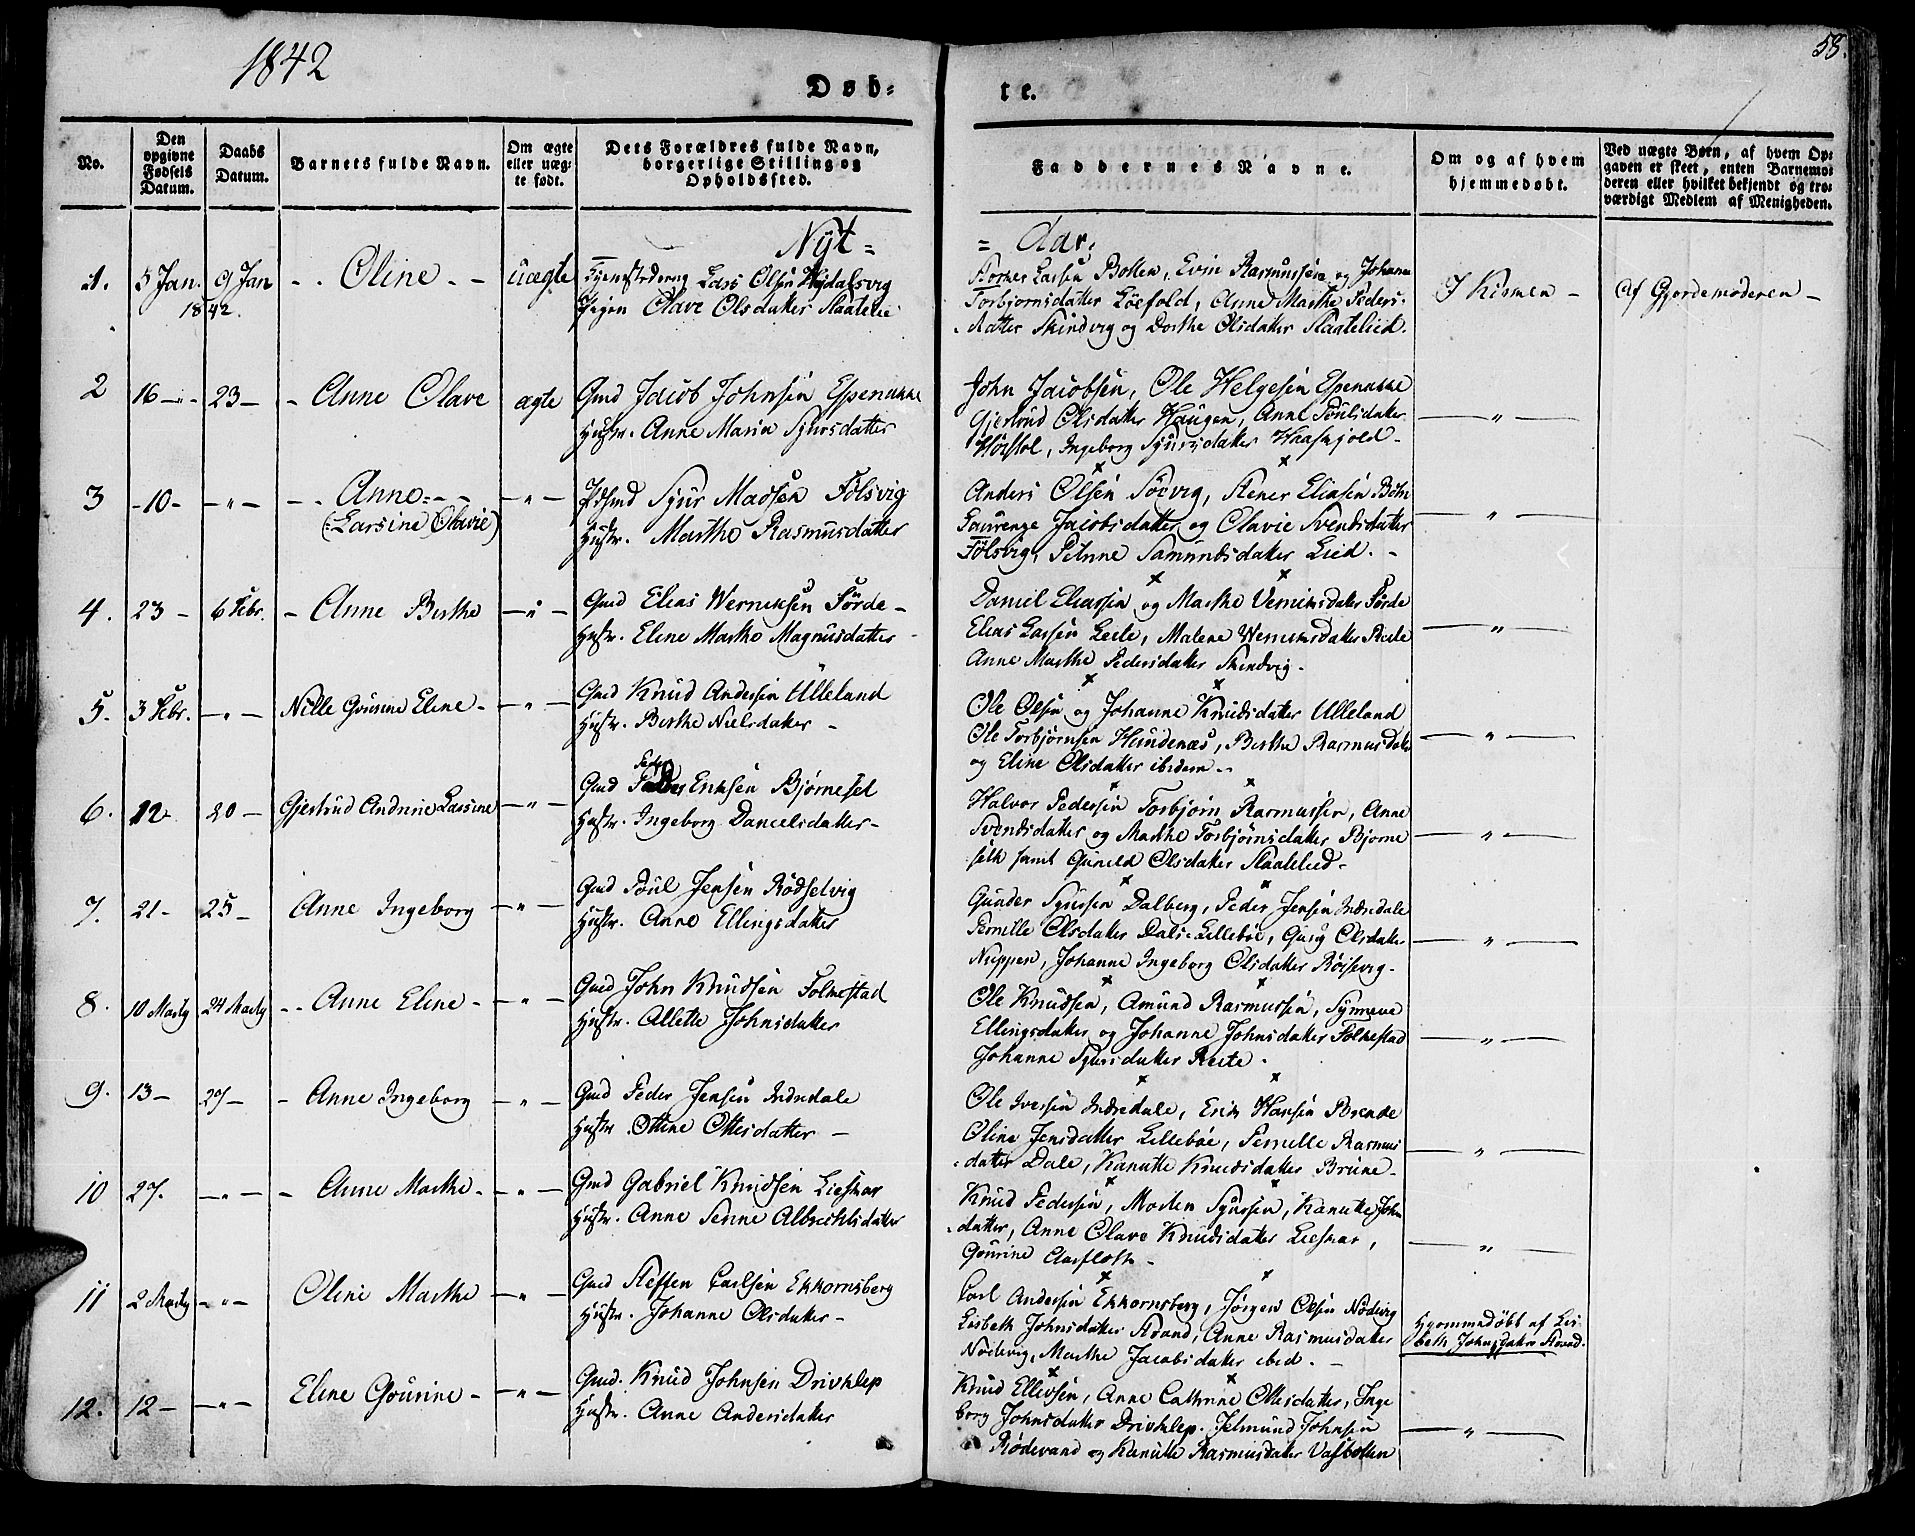 1842
58.
Døb-
te.
No.
Den opgivne Fødsels Datum.
Daabs Datum.
Barnets fulde Navn.
Om ægte eller uægte født.
Dets Forældres fulde Navn, borgerlige Stilling og Opholdssted.
Faddernes Navne.
Om og af hvem hjemmedøbt.
Ved uægte Børn, af hvem Opgaven er skeet, enten Barnemoderen eller hvilket bekjendt og troværdigt Medlem af Menigheden.
Nyt =
= Aar.
1. 5 Jan. 9 Jan - - Oline - - uægte Lars Olsen Hejdalsvig
1842. Pigen Olave Olsdatter Slaatelie
Larsen Botten, Evin Rasmussen og Johanne
Torbjørnsdatter Løefold, Anne Marthe Peders-
datter Skindvig og Dorthe Olsdatter Slaatelied.
I Kirken -
Af Gjordemoderen -
2 16 - 23 - - Anne Olave ægte Gmd Jacob Johnsen Espenakke
Hustr. Anne Maria Sjursdatter
John Jacobsen, Ole Helgesen Espenakke
Gjertrud Olsdatter Haugen, Anne Poulsdatter
Ingeborg Sjursdatter Haaskjold -
3 - 10 - - " - - - Anne - - - " - Sjur Madsen Følsvig
(Larsine Olavie) Hustr. Marthe Rasmusdatter
Anders Olsen Søevig, Stener Eliasen Bøhn
Laurenze Jacobsdatter og Olavie Svendsdatter
Følsvig, Petrine Samundsdatter Lied. -
4. 23 - 6 Febr. - Anne Birthe - " - Gmd Elias Werniksen Førde -
Hustr. Eline Marthe Magnusdatter -
Daniel Eliassen og Marthe Verniksdatter Førde
Elias Larsen Leite, Malene Werniksdatter
Anne Marthe Pedersdatter Skindvig -
5. 3 Febr. - " - Nille Gourine Eline - - " - Gmd Knud Andersen Ulleland
Hustr. Birthe Nielsdatter -
Ole Olsen og Johanne Knudsdatter Ulleland
Ole Torbjørnsen Hundenæs, Birthe Rasmusdatter
og Eline Olsdatter ibidem -
6. 12 20 - Gjertrud Andrine Larsine - " - Gmd Peder Eriksen Bjørneset
Hustr. Ingeborg Danielsdatter -
Halvor Pedersen, Torbjørn Rasmussen, Anne
Svendsdatter og Marthe Torbjørnsdatter Bjørne
seth samt Gunild Olsdatter Slaatelied -
7. 21 - 25 - Anne Ingeborg - " - Gmd Poul Jensen Rødselvig
Hustr. Anne Ellingsdatter
Gunder Sjursen Dalberg, Peder Jensen Indredale
Pernille Olsdatter Dals-Lillebøe, Olsdatter
Nuppen, Johanne Ingeborg Olsdatter Røisevig -
8. 10 Marty 24 Marty - - Anne Eline - - " - Gmd John Knudsen Folkestad
Hustr. Allette Johnsdatter
Ole Knudsen, Amund Rasmussen, Synneve
Ellingsdatter og Johanne Johnsdatter Folkestad
Johanne Sjursdatter Reite -
9. 13 - 27 - - Anne Ingeborg - " - Gmd Peder Jensen Indredale
Hustr. Ottine Ottesdatter -
Ole Iversen Indredale, Erik Hansen Brende
Oline Jensdatter Lillebøe, Pernille Rasmus
datter Dale, Kanutte Knudsdatter Brune -
10 27. - " - - Anne Marthe - - " - Gmd Gabriel Knudsen Lieskar
Hustr. Anne Senne Albrechtsdatter
Knud Pedersen, Morten Sjursen, Kanutte John
-datter, Anne Olave Knudsdatter Lieskar,
Gourine Aarfloth -
11 2 Marty - " - Oline Marthe - " - Gmd Steffen Carlsen Ekkornsberg
Hustr. Johanne Olsdatter -
Carl Andersen Ekkornsberg, Jørgen Olsen Nødevig
Lisbeth Johnsdatter Strand, Anne Rasmusdatter
Nødevig, Marthe Jacobsdatter ibid. -
Hjemmedøbt af Lis-
beth Johnsdatter Strand.
12. 12 - - " - Eline Gourine - - " - Gmd. Knud Johnsen Drivklep
Hustr. Anne Andersdatter
Knud Ellevsen, Anne Cathrine Ottesdatter, Inge
borg Johnsdatter Drivklep. Johnsen
Rødevand og Kanutte Rasmusdatter Vasbotten